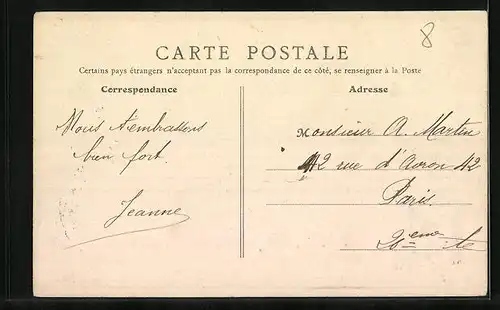 8
CARTE POSTALE
Certains pays étrangers n'acceptant pas la correspondance de ce côté, se renseigner à la Poste
Correspondance
Adresse
Nous t'embrassons
bien fort
Jeanne
Monsieur A. Marten
42 rue d'Avron 42
Paris
20eme